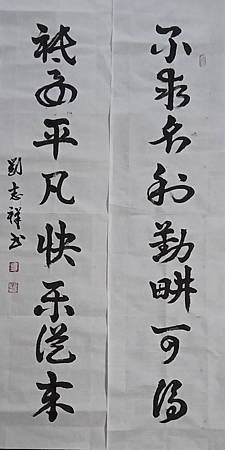 不求名利勤耕可得
祗要平凡快乐从来
劉志祥书